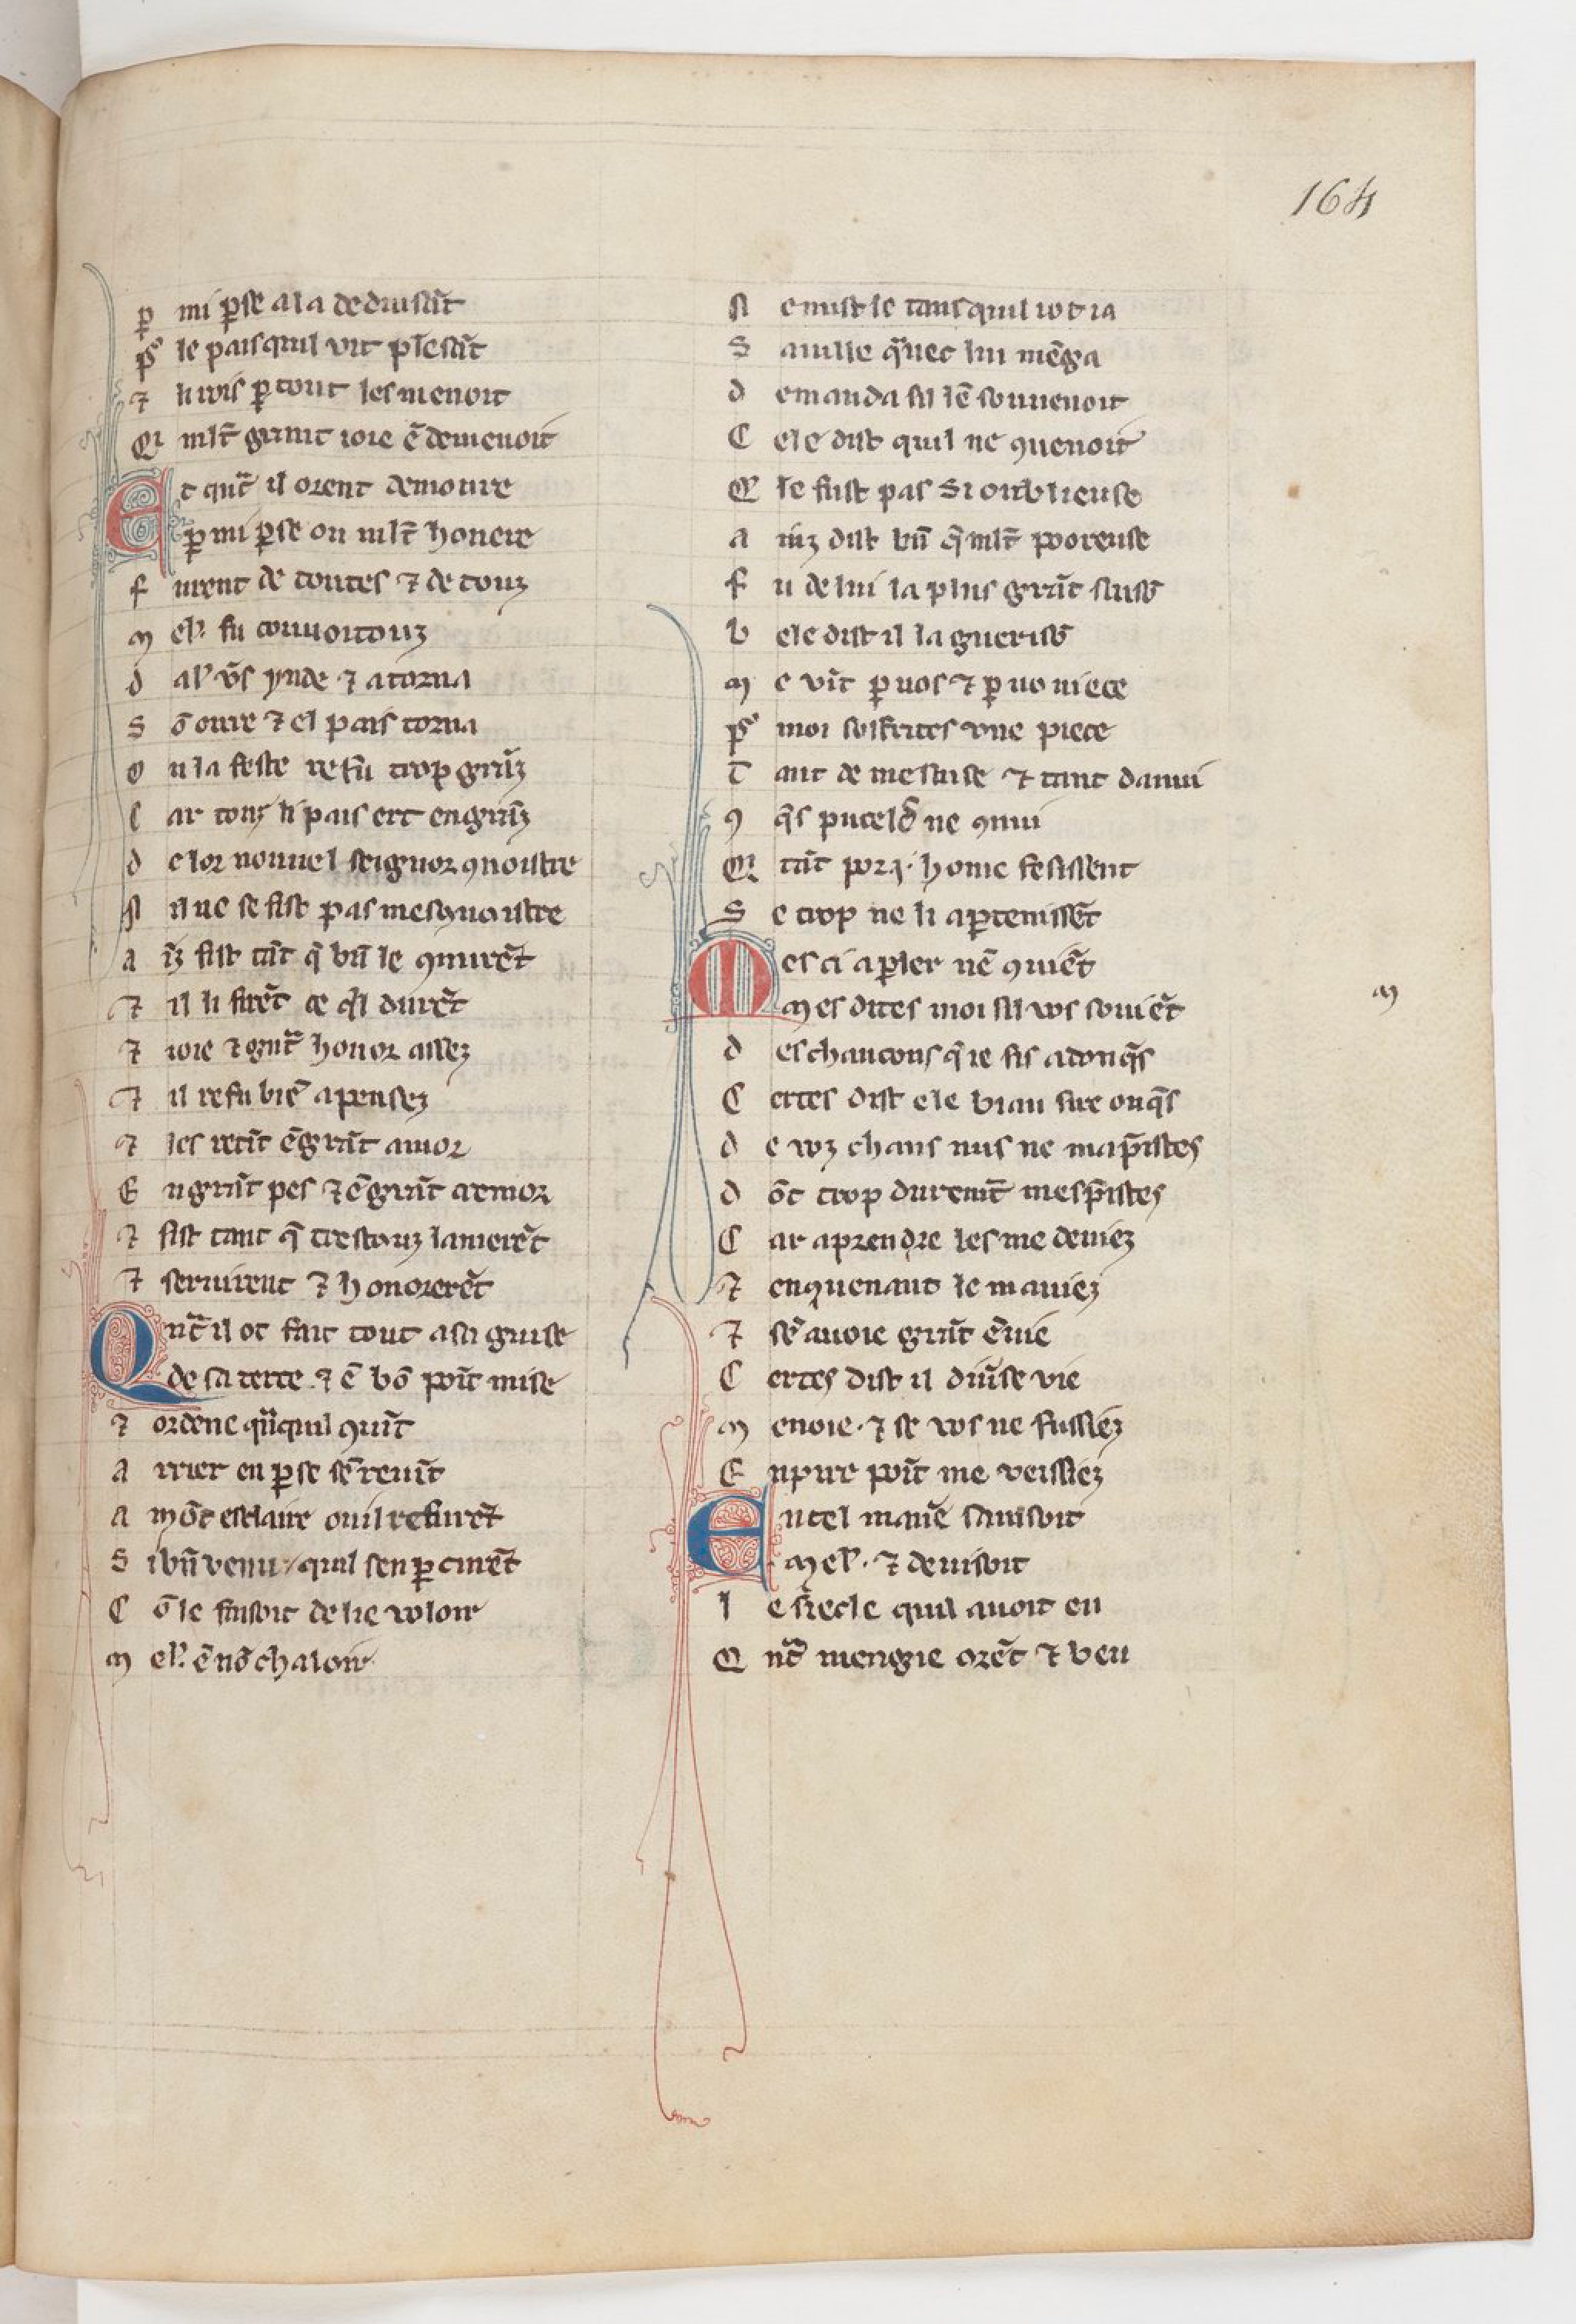 164
ꝑ mi ꝑse ala deduisāt
ꝑ le pais quil vit plesāt
⁊ li rois ꝑ tout les menoit
Q mlt̄ grant ioie ē demenoit
Et qnt̄ il orent demoure
ꝑ mi ꝑse ou mlt̄ honere
f urent de toutes ⁊ de touz
m el'. fu couuoitouz
d al' ṽs ynde ⁊ atorna
s ō oure ⁊ el pais torna
o u la feste refu trop grāz
C ar touz li pais ert engrāz
d e lor nouuel seignor ꝯnoistre
N il ne se fist pas mesꝯnoistre
a īz fist tāt q̄ bn̄ le ꝯnurēt
⁊ il li firēt ce q̄l durēt
⁊ ioie ⁊ gnt̄ honor assez
⁊ il refu biē apensez
⁊ les retīt ē grāt amor
E n grāt pes ⁊ ē grāt cremor
⁊ fist tant q̄ trestouz lamerēt
⁊ seruirent ⁊ honorerēt
Qnt̄ il ot fait tout a sa guise
de sa terre ⁊ ē bō poīt mise
⁊ ordene qn̄quil ꝯuīt
a rrier en ꝑse sē reuīt
a mōt esclaire ou il refurēt
S i bn̄ venu / quil sen ꝑcurēt
C ō le faisoit de lie voloir
m el'. ē nōchaloir
N e mist le tans quil iot ia
S a uille q̄ uec lui mēga
d emanda sil lē souuenoit
C ele dist quil ne ꝯuenoit
Q le fust pas si oublieuse
a inz dist bn̄ q̄ mlt̄ pooreuse
f u de lui la plus grāt saisō
b ele dist il la guerisō
m e vīt ꝑ uos ⁊ ꝑ uo niece
ꝑ moi soffrites vne piece
T ant de mesaise ⁊ tant danui
ꝯ q̄s pucelē ne ꝯnui
Q tāt por .j. home fesissent
S e trop ne li aꝑtenissēt
Mes ci a ꝑler nē ꝯuiēt
mes dites moi sil vos souiēt
m
d es chancons q̄ ie fis adonq̄s
C ertes dist ele biau sire onq̄s
d e voz chans nus ne map̄istes
d ōt trop duremt̄ mesp̄istes
C ar aprendre les me deuiez
⁊ enquenant le mauiez
⁊ sē auoie grāt ēuie
C ertes dist il diūse vie
m enoie. ⁊ se vos ne fussiez
E npire poīt me veissiez
En tel manē sauisoit
mel'. ⁊ deuisoit
l e siecle quil auoit eu
Q nt̄ mengie orēt ⁊ beu